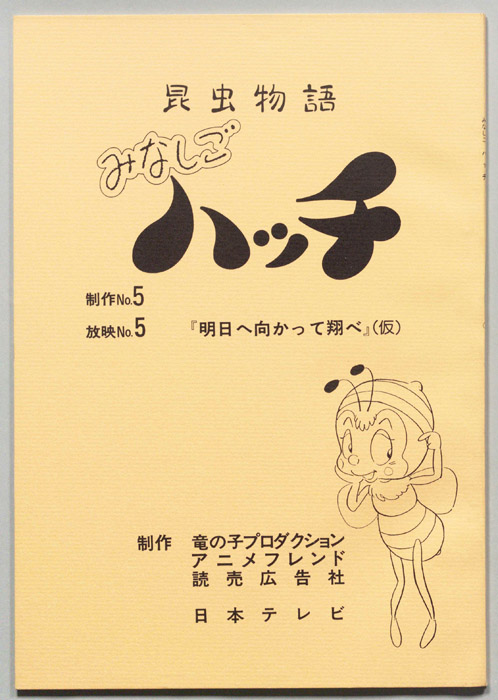 昆虫物語
みなしご
ハッチ
制作No.5
放映No.5 『明日へ向かって翔べ』(仮)
制作 竜の子プロダクション
アニメフレンド
読売広告社
日本テレビ